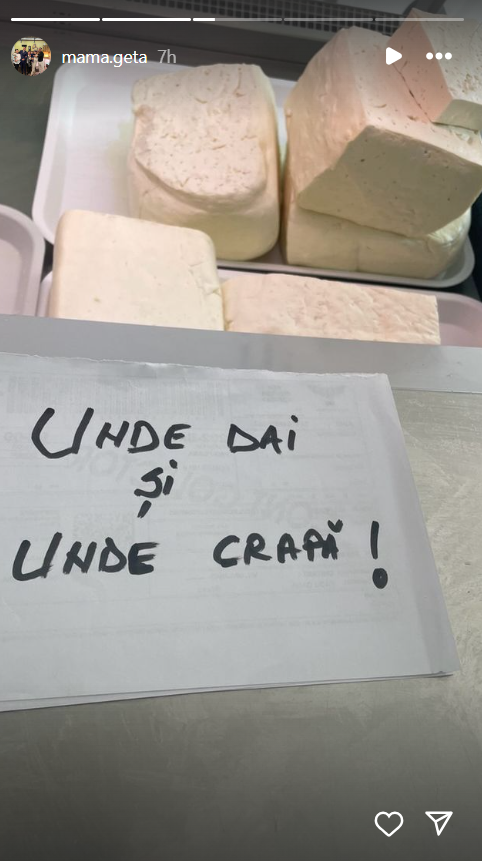 mama.geta 7h
UNDE DAI
ȘI
UNDE CRAPĂ!